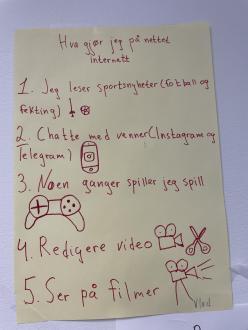 Hva gjør jeg på nettet
internett
1. Jeg leser sportsnyheter (fotball og
fekting)
2. Chatte med venner (Instagram og
Telegram)
3. Noen ganger spiller jeg spill
4. Redigere video
5. Ser på filmer
Vlad